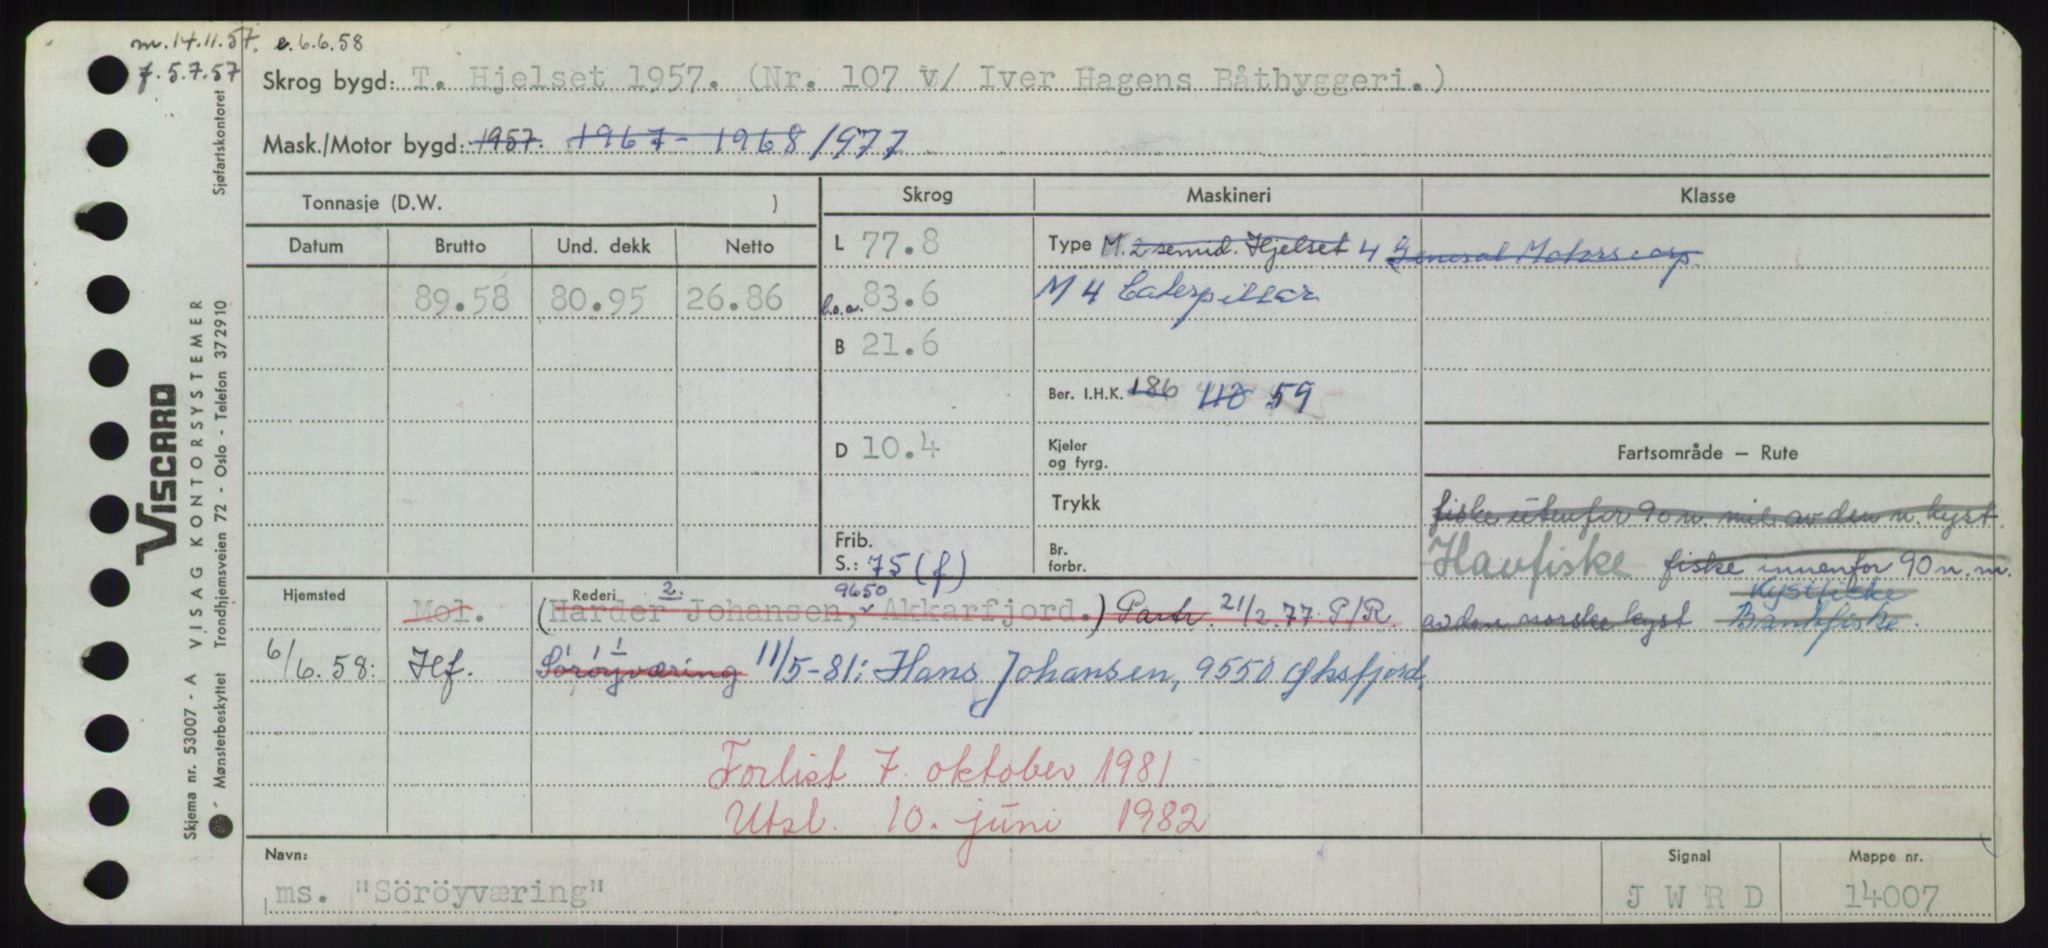 m. 14.11.57. e. 6.6.58
f. 5.7.57
Skrog bygd: T. Hjelset 1957. (Nr. 107 v/ Iver Hagens Båtbyggeri.)
Mask./Motor bygd: 1957. 1967 - 1968 1977
Tonnasje (D.W. )
Skrog
Maskineri
Klasse
Datum Brutto Und. dekk Netto
L 77.8
Type M. 2 semid. Hjelset 4 General Motors corp.
89.58 80.95 26.86
l.o.a. 83.6
M 4 Caterpillar
B 21.6
Ber. I.H.K. 186 59
D 10.4
Kjeler og fyrg.
Fartsområde – Rute
Trykk
fiske utenfor 90 n. mil av den n. kyst.
Frib. S.: 75 (f)
Br. forbr.
Havfiske fiske innenfor 90 n. m.
Kystfiske
av den norske kyst Bankfiske.
Hjemsted
Rederi 2. 9650
Mol. (Harder Johansen, Akkarfjord.) Partr. 21/2.77 P/R.
6/6.58: Hf. Söröyværing 11/5-81: Hans Johansen, 9550 Øksfjord,
Forlist 7. oktober 1981
Utsl. 10. juni 1982
Navn:
ms. "Söröyværing"
Signal
J W R D
Mappe nr.
14007
VISCARD
VISAG KONTORSYSTEMER
Skjema nr. 53007 - A
Mønsterbeskyttet Trondhjemsveien 72 - Oslo - Telefon 372910
Sjøfartskontoret